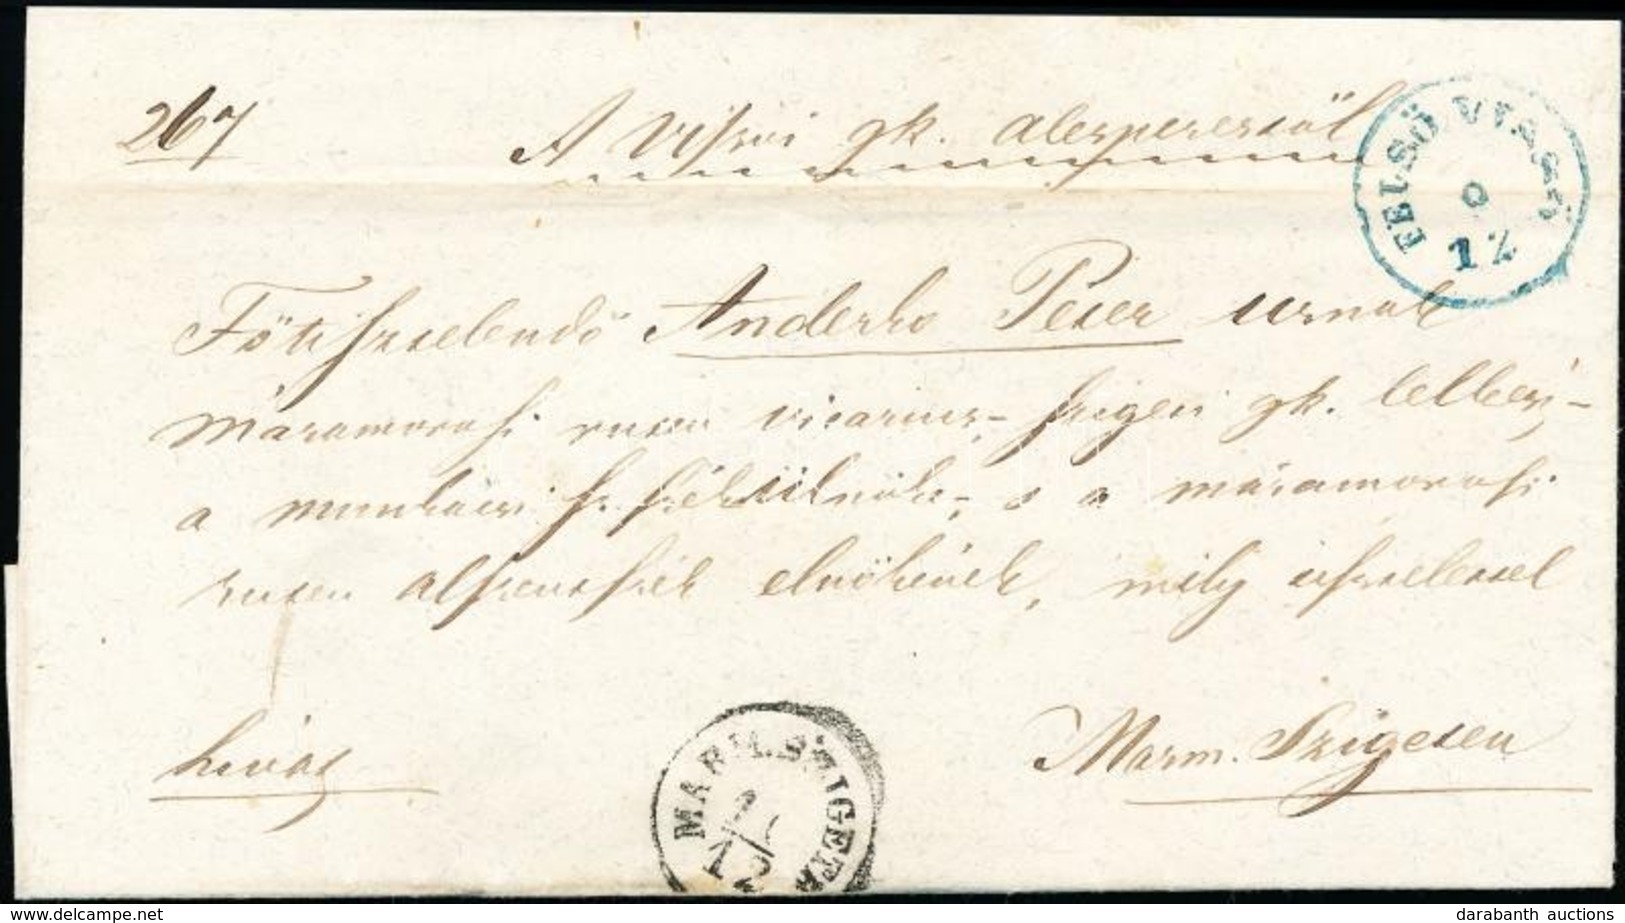 267
A Visói gk. alesperestől
FELSÖ VISSÓ
9
12
Főtisztelendő Anderko Peter urnak
máramorosi ruten vicarius, szigeti gk. lelkész,
a munkácsi sz. szék ülnöke, s a máramorosi
ruten alszentszék elnökének, mély tisztelettel
hivat
Marm. Szigeten
MARM. SZIGETH
12
www.delcampe.net
darabanth auctions